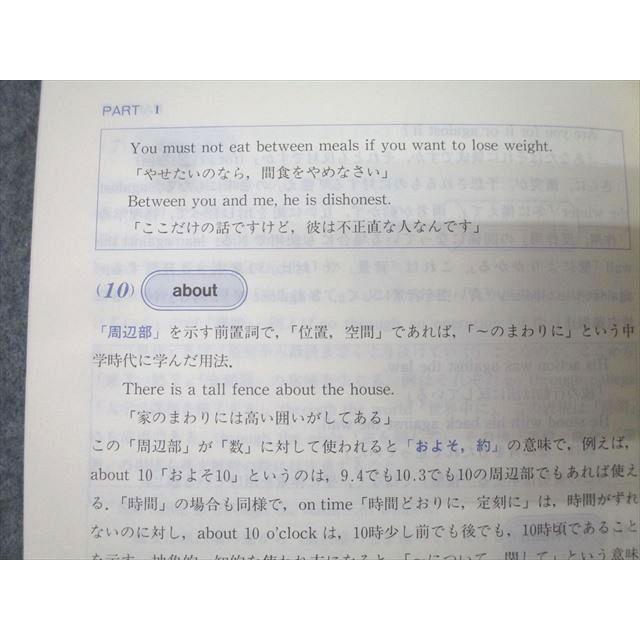 PART I
You must not eat between meals if you want to lose weight.
「やせたいのなら，間食をやめなさい」
Between you and me, he is dishonest.
「ここだけの話ですけど，彼は不正直な人なんです」
(10) about
「周辺部」を示す前置詞で，「位置，空間」であれば，「～のまわりに」という中
学時代に学んだ用法．
There is a tall fence about the house.
「家のまわりには高い囲いがしてある」
この「周辺部」が「数」に対して使われると「およそ，約」の意味で，例えば，
about 10「およそ10」というのは，9.4でも10.3でも10の周辺部でもあれば使え
る．「時間」の場合も同様で，on time「時間どおりに，定刻に」は，時間がずれ
ないのに対し，about 10 o'clock は，10時少し前でも後でも，10時頃であること
を示す．抽象的，知的な使われ方になると，「～について，関して」という意味